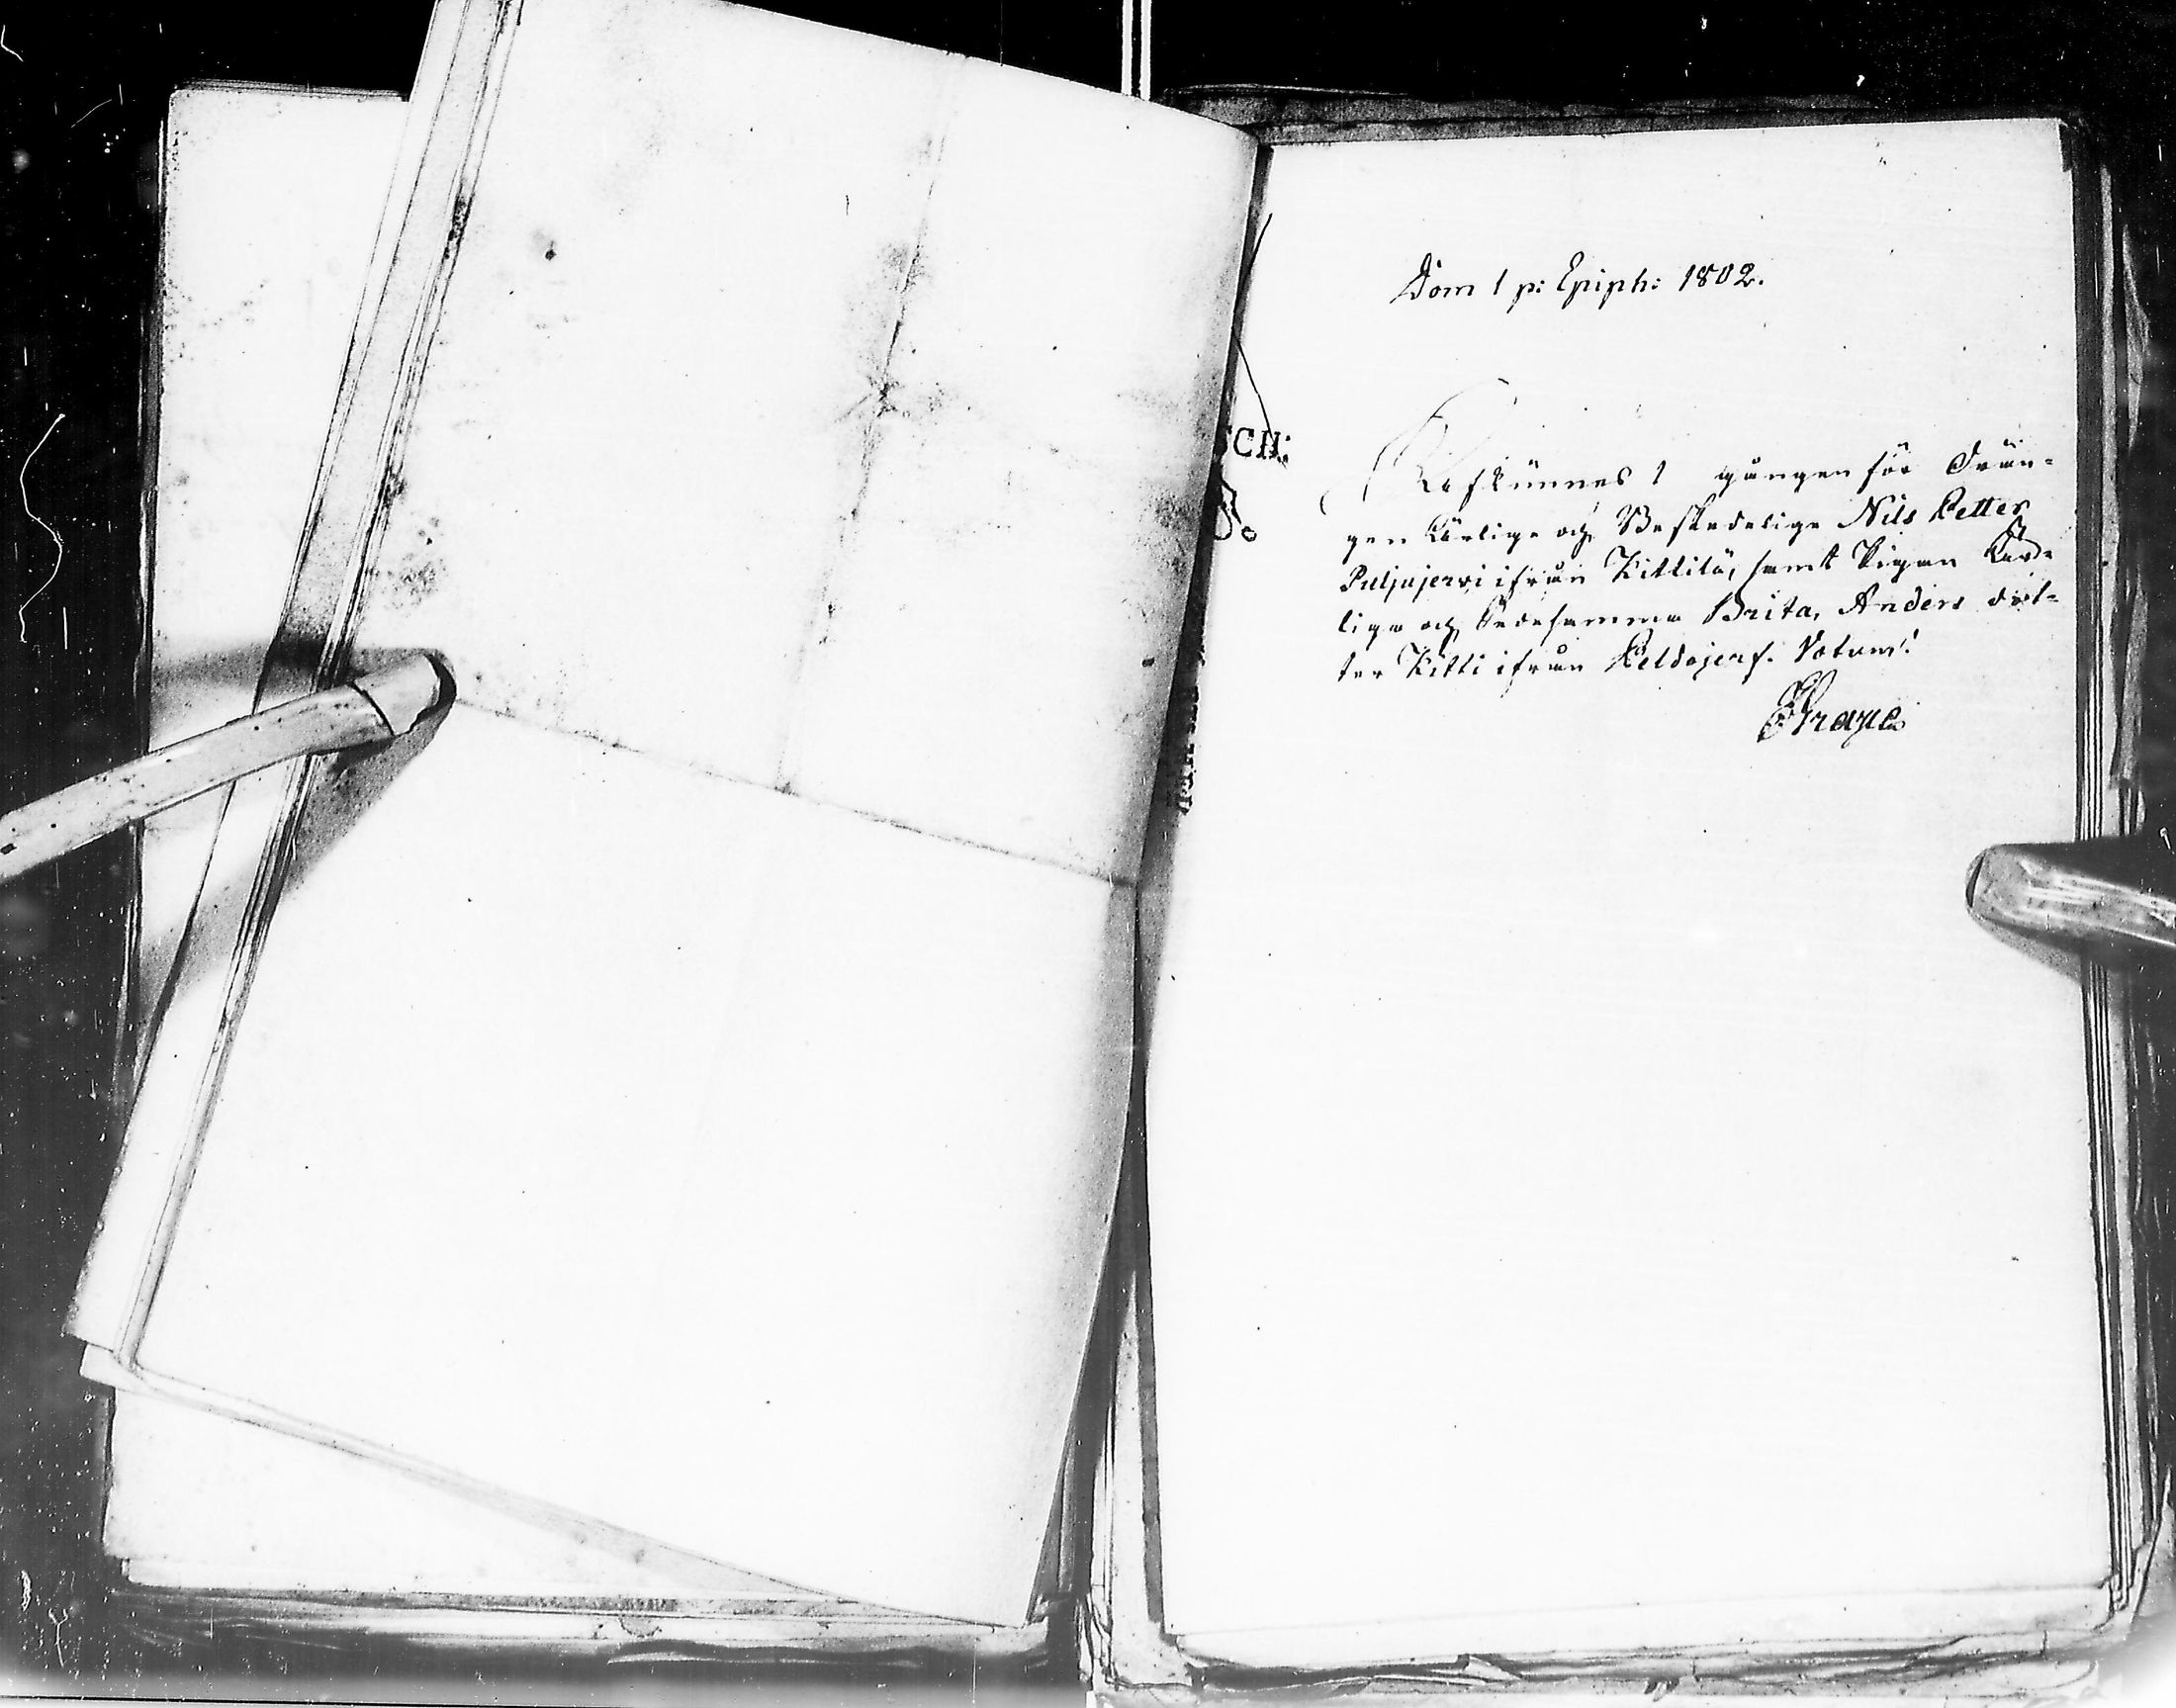 Dom 1 p: Epiph: 1802.
Afkünnes 1 gången för Drän-
gen Ärlige och Beskedelige Nils Petter
Puljujervi ifrån Kittilä, samt Pigan Ärl-
liga och Dedesamma Brita, Anders dot-
ter Kitti ifrån Peldojerf. Votum!
SCH: